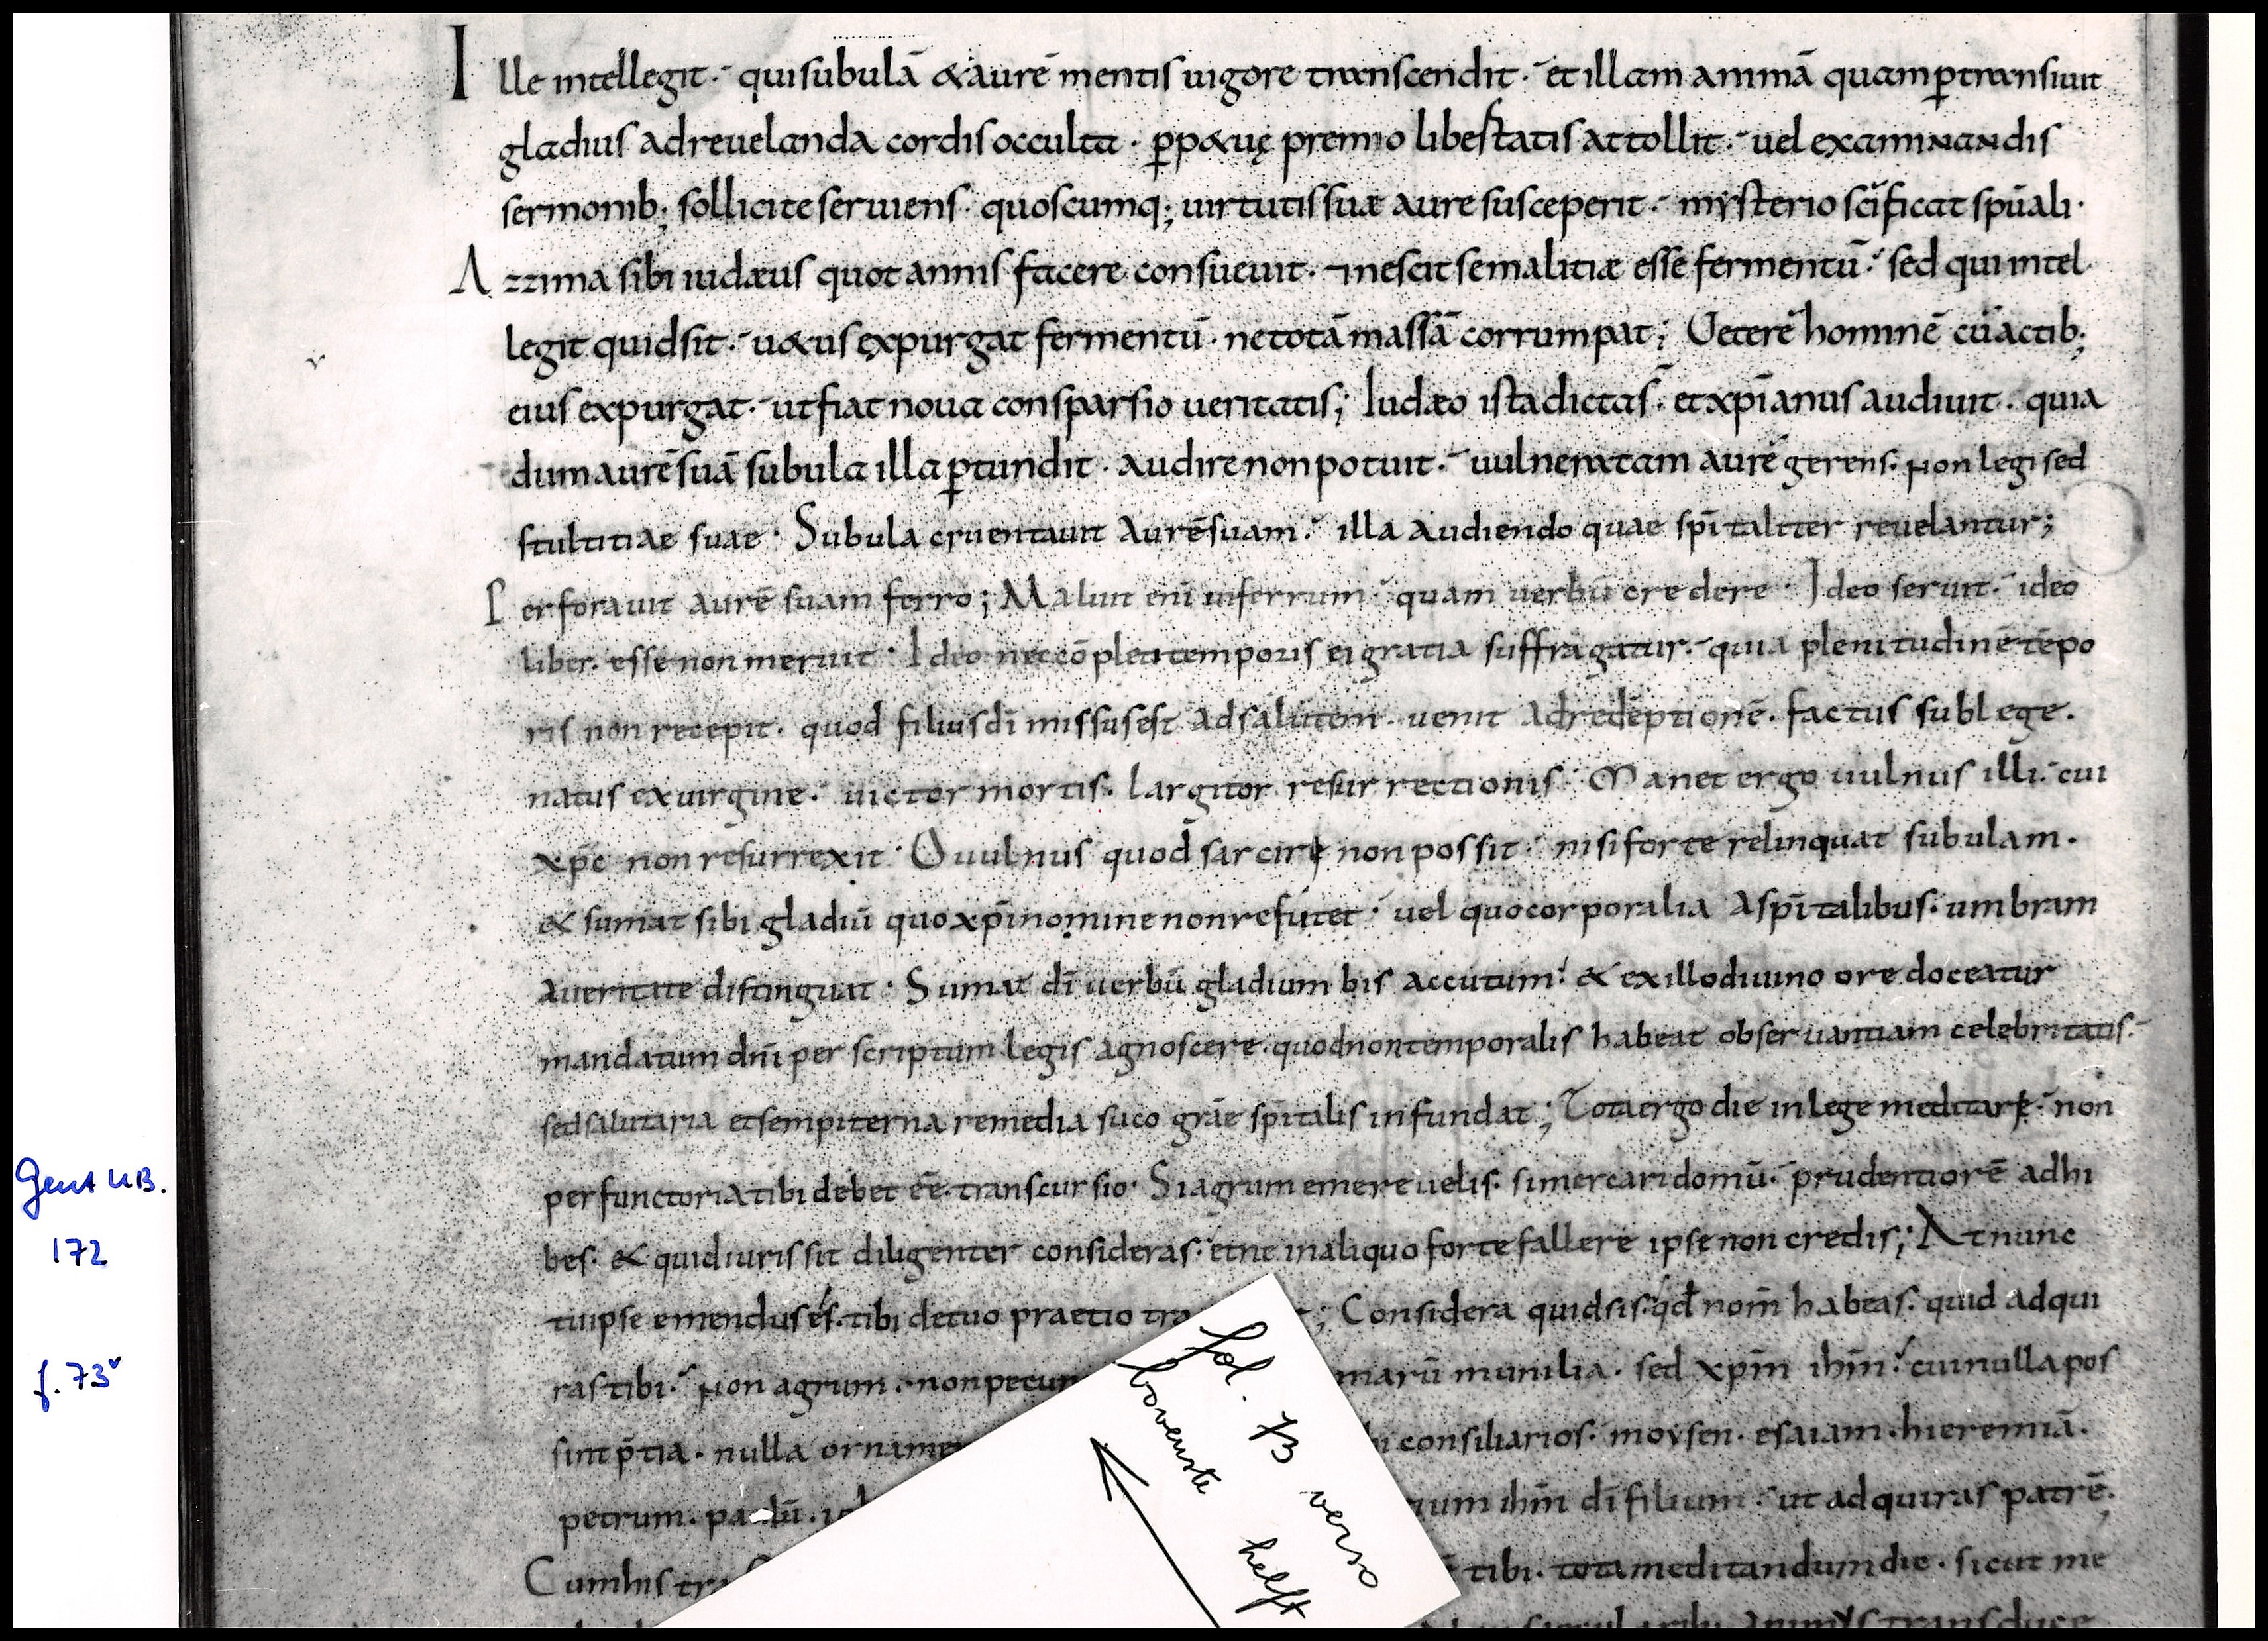 Ille intellegit· qui subulā & aurē mentis uigore transcendit· et illam animā quam ꝑtransiuit
gladius ad reuelanda cordis occulta· ꝑp&uę premio libertatis attollit· uel examinandis
sermonib; sollicite seruiens· quoscumq; uirtutis suæ aure susceperit· mysterio sc̄ificat sp̄uali·
Azzima sibi iudæus quot annis facere consueuit· nescit se malitiæ esse fermentū· sed qui intel
legit quid sit· u&us expurgat fermentū· ne totā massā corrumpat; Ueterē hominē cū actib;
eius expurgat· ut fiat noua consparsio ueritatis; Iudæo ista dictas· et xp̄ianus audiuit· quia
dum aurē suā subula illa ꝑtundit· audire non potuit· uulneratam aurē gerens· non legi sed
stultitiae suae· Subula cruentauit aurē suam· illa audiendo quae sp̄italiter reuelantur;
Perforauit aurē suam ferro; Maluit eni in ferrum· quam uerbū credere· Ideo seruit· ideo
liber· esse non meruit· Ideo nec cōpleti temporis ei gratia suffragatur· quia plenitudinē tēpo
ris non recepit· quod filius dī missus est ad salutem· uenit ad redēptionē· factus sub lege·
natus ex uirgine· uictor mortis· largitor resurrectionis· Manet ergo uulnus illi· cui
xp̄c non resurrexit· O uulnus quod sarcire non possit· nisi forte relinquat subulam·
& sumat sibi gladiū quo xp̄i nomine non refutet· uel quo corporalia a sp̄italibus· umbram
a ueritate distinguat· Sumat dī uerbū gladium bis accutum· & ex illo diuino ore doceatur
mandatum dnī per scriptum legis agnoscere· quod non temporalis habeat obseruantiam celebritatis·
sed salutaria et sempiterna remedia suco grāe sp̄italis infundat; Tota ergo die in lege meditare· non
perfunctoria tibi debet ēē transcursio· Si agrum emere uelis· si mercari domū· prudentiorē adhi
bes· & quid iuris sit diligenter consideras· et ne in aliquo forte fallere ipse non credis; At nunc
tu ipse emendus és· tibi de tuo praetio tra
; Considera quid sis· qd nom̄ habeas· quid adqui
ras tibi· non agrum· non pecun
marū munilia· sed xp̄m ihm̄· cui nulla pos
sint p̄tia· nulla orname
consiliarios· moysen· esaiam· hieremiā·
petrum· paulū·
ihm̄ dī filium· ut adquiras patrē·
Cum his tra
tibi· tota meditandum die· sicut me
Gent UB.
172
f. 73v
fol. 73 verso
bovenste helft